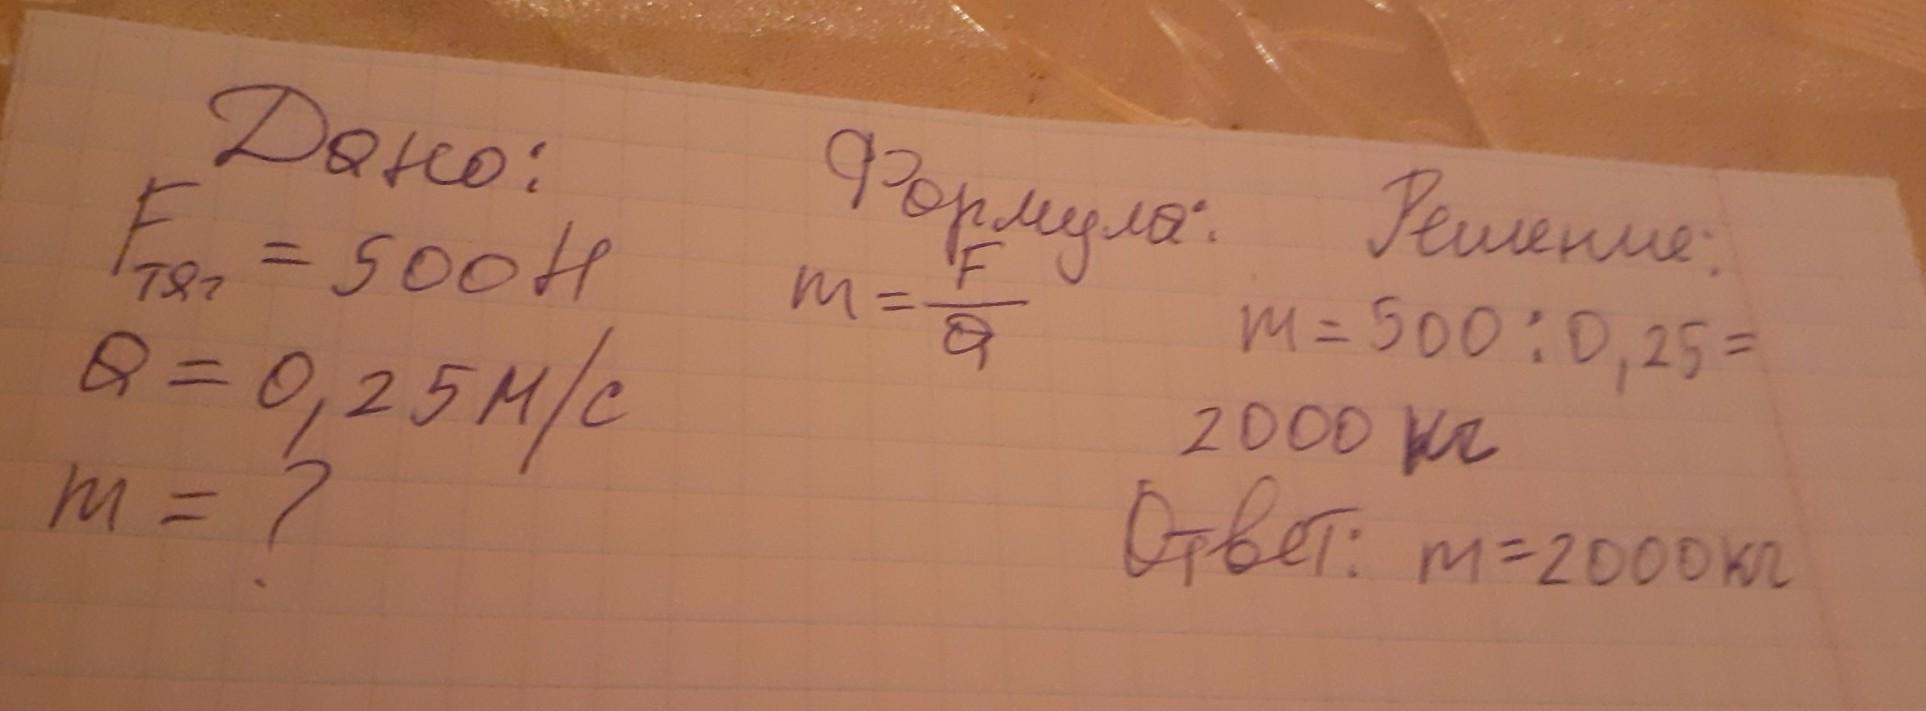 Дано:
Fтяг = 500Н
a = 0,25м/с
m = ?
Формула:
m = F/a
Решение:
m = 500 : 0,25 =
2000 кг
Ответ: m = 2000кг